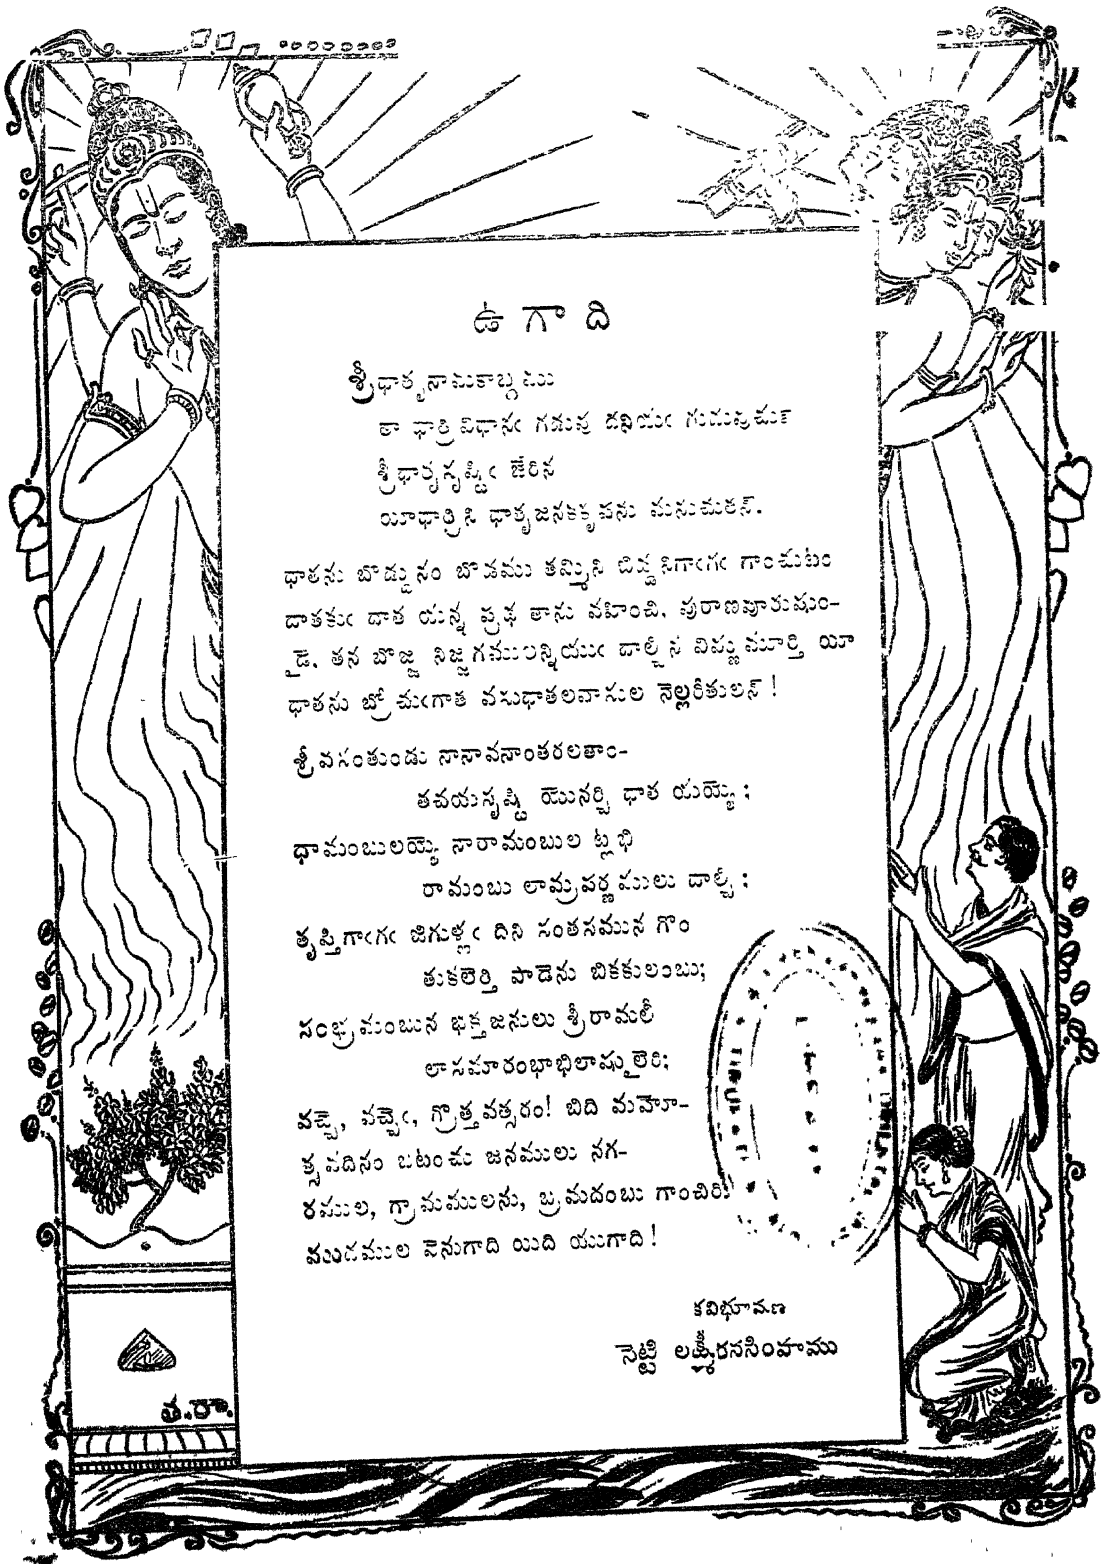 ఉగాది
శ్రీధాతృనామకాబ్దము
తా ధాత్రి విధానఁ గడుపు దనియఁ గుడుపుచున్
శ్రీధాతృసృష్టిఁ జేరిన
యీధాత్రిని ధాతృజనకకృపను మనుచుతన్.
ధాతను బొడ్డునం బొడము తమ్మిని బివ్వనిగాఁగఁ గాంచుటం
దాతకుఁ దాత యన్న ప్రథ తాను వహించి, పురాణపూరుషుం-
డై, తన బొజ్జ నిజ్జగములన్నియుఁ దాల్చిన విష్ణుమూర్తి యీ
ధాతను బ్రోచుఁగాత వసుధాతలవాసుల నెల్లరీతులన్!
శ్రీవసంతుండు నానావనాంతరలతాం-
తచయసృష్టి యొనర్చి ధాత యయ్యె;
ధామంబులయ్యె నారామంబుల ట్లభి
రామంబు లామ్రపర్ణములు దాల్చి;
తృప్తిగాఁగఁ జిగుళ్లఁ దిని సంతసమున గొం
తుకలెత్తి పాడెను బికకులంబు;
సంభ్రమంబున భక్తజనులు శ్రీరామలీ
లాసమారంభాభిలాషులైరి;
వచ్చె, వచ్చెఁ, గ్రొత్తవత్సరం! బిది మహో-
త్సవదినం బటంచు జనములు నగ-
రముల, గ్రామములను, బ్రమదంబు గాంచిరి
ముదముల పెనుగాది యిది యుగాది!
కవిభూషణ
సెట్టి లక్ష్మీనరసింహము
త.రా.